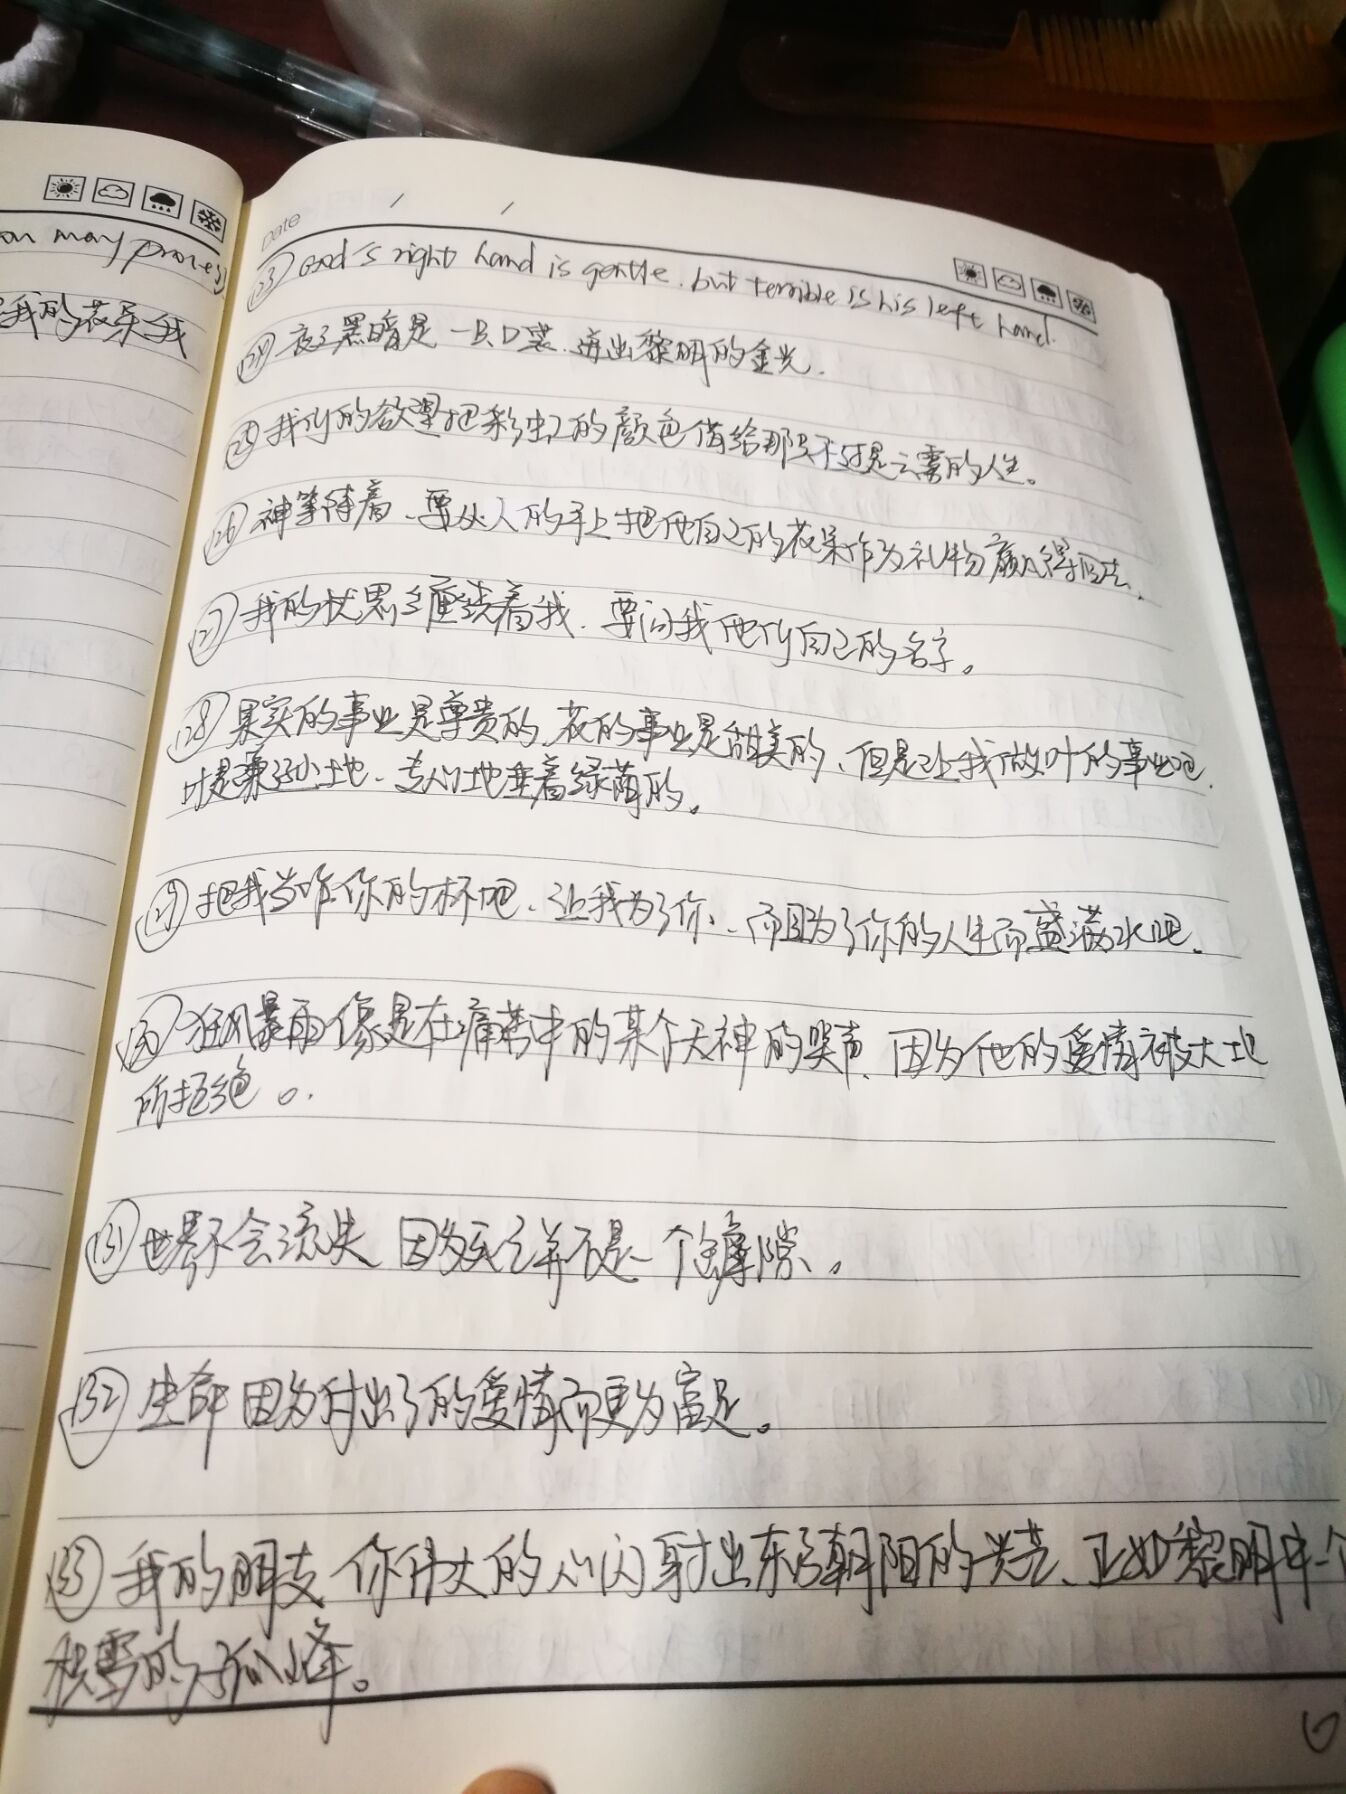 on may process
我的花朵我
Date / /
(23) God's right hand is gentle. but terrible is his left hand.
(24) 夜之黑暗是一只口袋、迸出黎明的金光.
(25) 我们的欲望把彩虹的颜色借给那只不过是云雾的人生。
(26) 神等待着、要从人的手上把他自己的花朵作为礼物赢得回去.
(27) 我的忧思缠绕着我、要问我他们自己的名字。
(28) 果实的事业是尊贵的、花的事业是甜美的、但是让我做叶的事业吧.
叶是谦逊地、专心地垂着绿荫的。
(29) 把我当作你的杯吧、让我为了你、而且为了你的人生而盛满水吧.
(30) 狂风暴雨像是在痛苦中的某个天神的哭声、因为他的爱情被大地
所拒绝。
(31) 世界不会流失 因为死亡并不是一个罅隙。
(32) 生命因为付出了的爱情而更为富足。
(33) 我的朋友 你伟大的心闪射出东方朝阳的光芒、正如黎明中一个
积雪的孤峰。